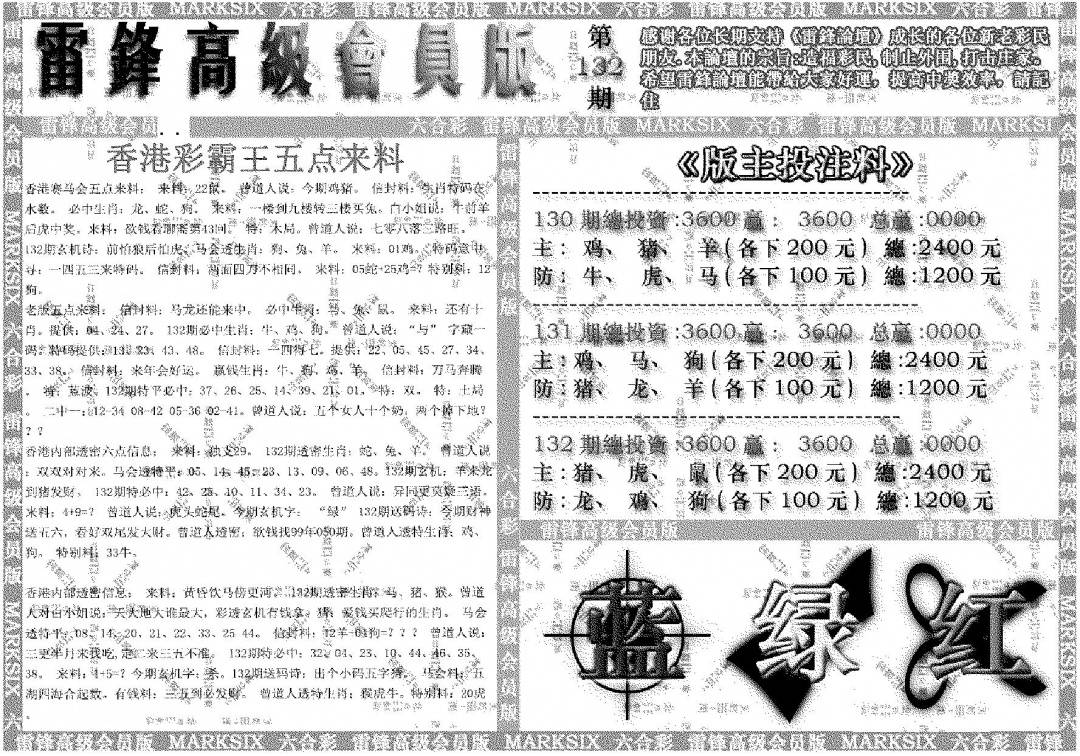 雷锋高级会员版 MARKSIX 六合彩 雷锋高级会员版 MARKSIX 六合彩 雷锋高级会员版 MARKSIX 六合彩
雷鋒高級會員版
第
132
期
感谢各位长期支持《雷鋒論壇》成长的各位新老彩民
朋友.本論壇的宗旨:造福彩民,制止外围,打击庄家.
希望雷鋒論壇能帶給大家好運，提高中獎效率，請記
住
雷锋高级会员
六合彩 雷锋高级会员版 MARKSIX 六合彩 雷锋高级会员版 MARKSI
香港彩霸王五点来料
香港赛马会五点来料： 来料：22鼠。 曾道人说：今期鸡猪。 信封料：生肖特码在
水数。 必中生肖：龙、蛇、狗。 来料：一楼到九楼转三楼买兔。白小姐说：牛前羊
后虎中奖。来料：欲钱看聊斋第43回。 特：木局。曾道人说：七零八落三路旺。
132期玄机诗：前怕狼后怕虎、马会透生肖：狗、兔、羊。 来料：01鸡、特码意中
寻：一四五三来特码。 信封料：两面四刀不相同。 来料：05蛇+25鸡=？特别料：12
狗。
老版五点来料： 信封料：马龙还能来中。 必中生肖：马、兔、鼠。 来料：还有十
肖。提供：04、24、27。 132期必中生肖：牛、鸡、狗。 曾道人说：“与” 字藏一
码。特码提供：13、23、43、48。 信封料：一四得七。提供：22、05、45、27、34、
33、38。 信封料：来年会好运。 赢钱生肖：牛、狗、鸡、羊。 信封料：万马奔腾
。 特：蓝波。132期特平必中：37、26、25、14、39、21、01， 特：双。 特：土局
。二中一：12-34 08-42 05-36 02-41。曾道人说：五个女人十个奶，两个掉下地？
？？
香港内部透密六点信息： 来料：独支29。 132期透密生肖：蛇、兔、羊。 曾道人说
：双双对对来。马会透特平：05、14、45、23、13、09、06、48。132期玄机：羊来龙
到猪发财。 132期特必中：42、25、40、11、34、23。 曾道人说：异同更莫疑三语。
来料：4+9=？ 曾道人说：虎头蛇尾。今期玄机字： “绿” 132期送码诗：今期财神
送五六，看好双尾发大财。曾道人透密：欲钱找99年050期。曾道人透特生肖：鸡、
狗。 特别料：33牛。
香港内部透密信息： 来料：黄昏饮马傍更河。132期透密生肖：马、猪、猴。曾道
人对白小姐说：天大地大谁最大，彩透玄机有钱拿。猜：爱钱买爬行的生肖。 马会
透特平：08、14、20、21、22、33、25 44。 信封料：12羊-01狗=？？？ 曾道人说：
三更半月来我吃,定二来三五不准。 132期特必中：32、04、23、10、44、46、35、
38。 来料：4+5=？今期玄机字：杀。132期送码诗：出个小码五字猜。 马会料：五
湖四海合起数。有钱料：三五到必发财。 曾道人透特生肖：猴虎牛。特别料：20虎
。
《版主投注料》
130 期總投資 :3600 赢： 3600 总赢 :0000
主：鸡、 猪、 羊(各下 200 元) 總:2400 元
防：牛、 虎、 马(各下 100 元) 總:1200 元
131 期總投資 :3600 赢： 3600 总赢 :0000
主：鸡、 马、 狗(各下 200 元) 總:2400 元
防：猪、 龙、 羊(各下 100 元) 總:1200 元
132 期總投資 :3600 赢： 3600 总赢 :0000
主：猪、 虎、 鼠(各下 200 元) 總:2400 元
防：龙、 鸡、 狗(各下 100 元) 總:1200 元
雷锋高级会员版 雷锋高级会员版
蓝 绿 红
雷锋高级会员版 MARKSIX 六合彩 雷锋高级会员版 MARKSIX 六合彩 雷锋高级会员版 MARKSIX 六合彩